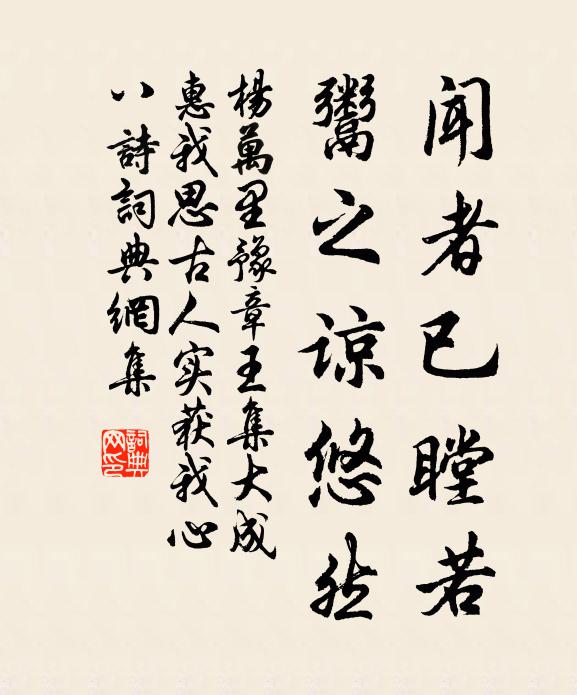 闻者已瞠若
鬻之谅悠然
楊萬里豫章王集大成
惠我思古人实获我心
八詩詞典網集
詞典網印